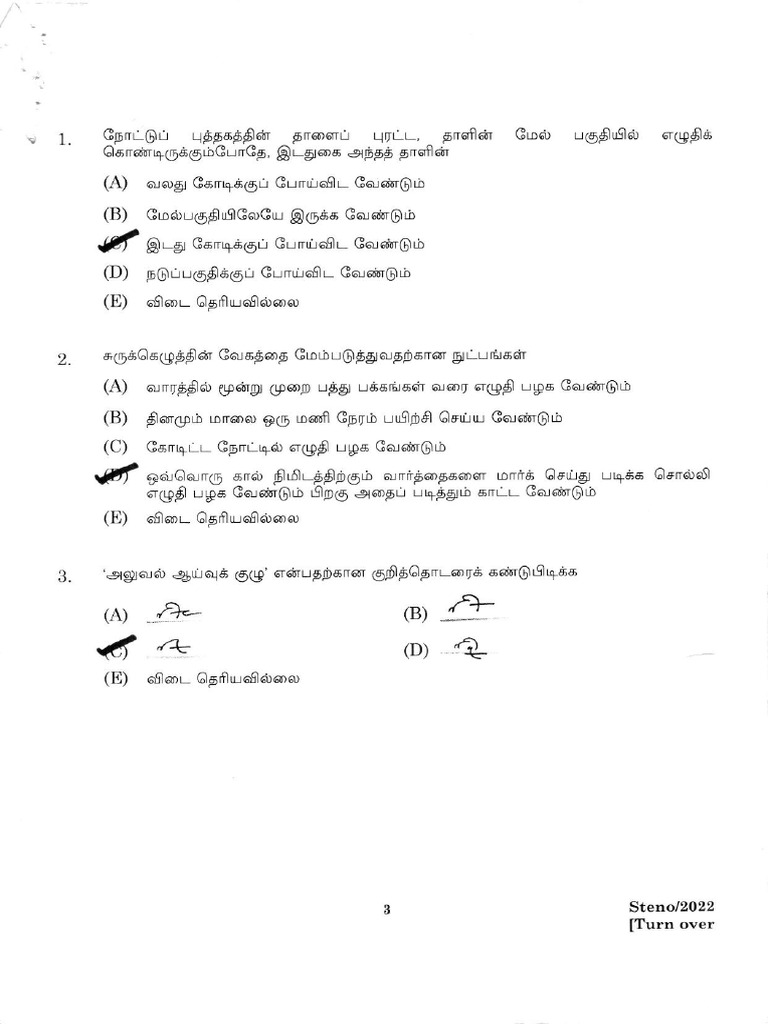 1. நோட்டுப் புத்தகத்தின் தாளைப் புரட்ட, தாளின் மேல் பகுதியில் எழுதிக்
கொண்டிருக்கும்போதே, இடதுகை அந்தத் தாளின்
(A) வலது கோடிக்குப் போய்விட வேண்டும்
(B) மேல்பகுதியிலேயே இருக்க வேண்டும்
(C) இடது கோடிக்குப் போய்விட வேண்டும்
(D) நடுப்பகுதிக்குப் போய்விட வேண்டும்
(E) விடை தெரியவில்லை
2. சுருக்கெழுத்தின் வேகத்தை மேம்படுத்துவதற்கான நுட்பங்கள்
(A) வாரத்தில் மூன்று முறை பத்து பக்கங்கள் வரை எழுதி பழக வேண்டும்
(B) தினமும் மாலை ஒரு மணி நேரம் பயிற்சி செய்ய வேண்டும்
(C) கோடிட்ட நோட்டில் எழுதி பழக வேண்டும்
(D) ஒவ்வொரு கால் நிமிடத்திற்கும் வார்த்தைகளை மார்க் செய்து படிக்க சொல்லி
எழுதி பழக வேண்டும் பிறகு அதைப் படித்தும் காட்ட வேண்டும்
(E) விடை தெரியவில்லை
3. ‘அலுவல் ஆய்வுக் குழு’ என்பதற்கான குறித்தொடரைக் கண்டுபிடிக்க
(A) (B)
(C) (D)
(E) விடை தெரியவில்லை
3
Steno/2022
[Turn over